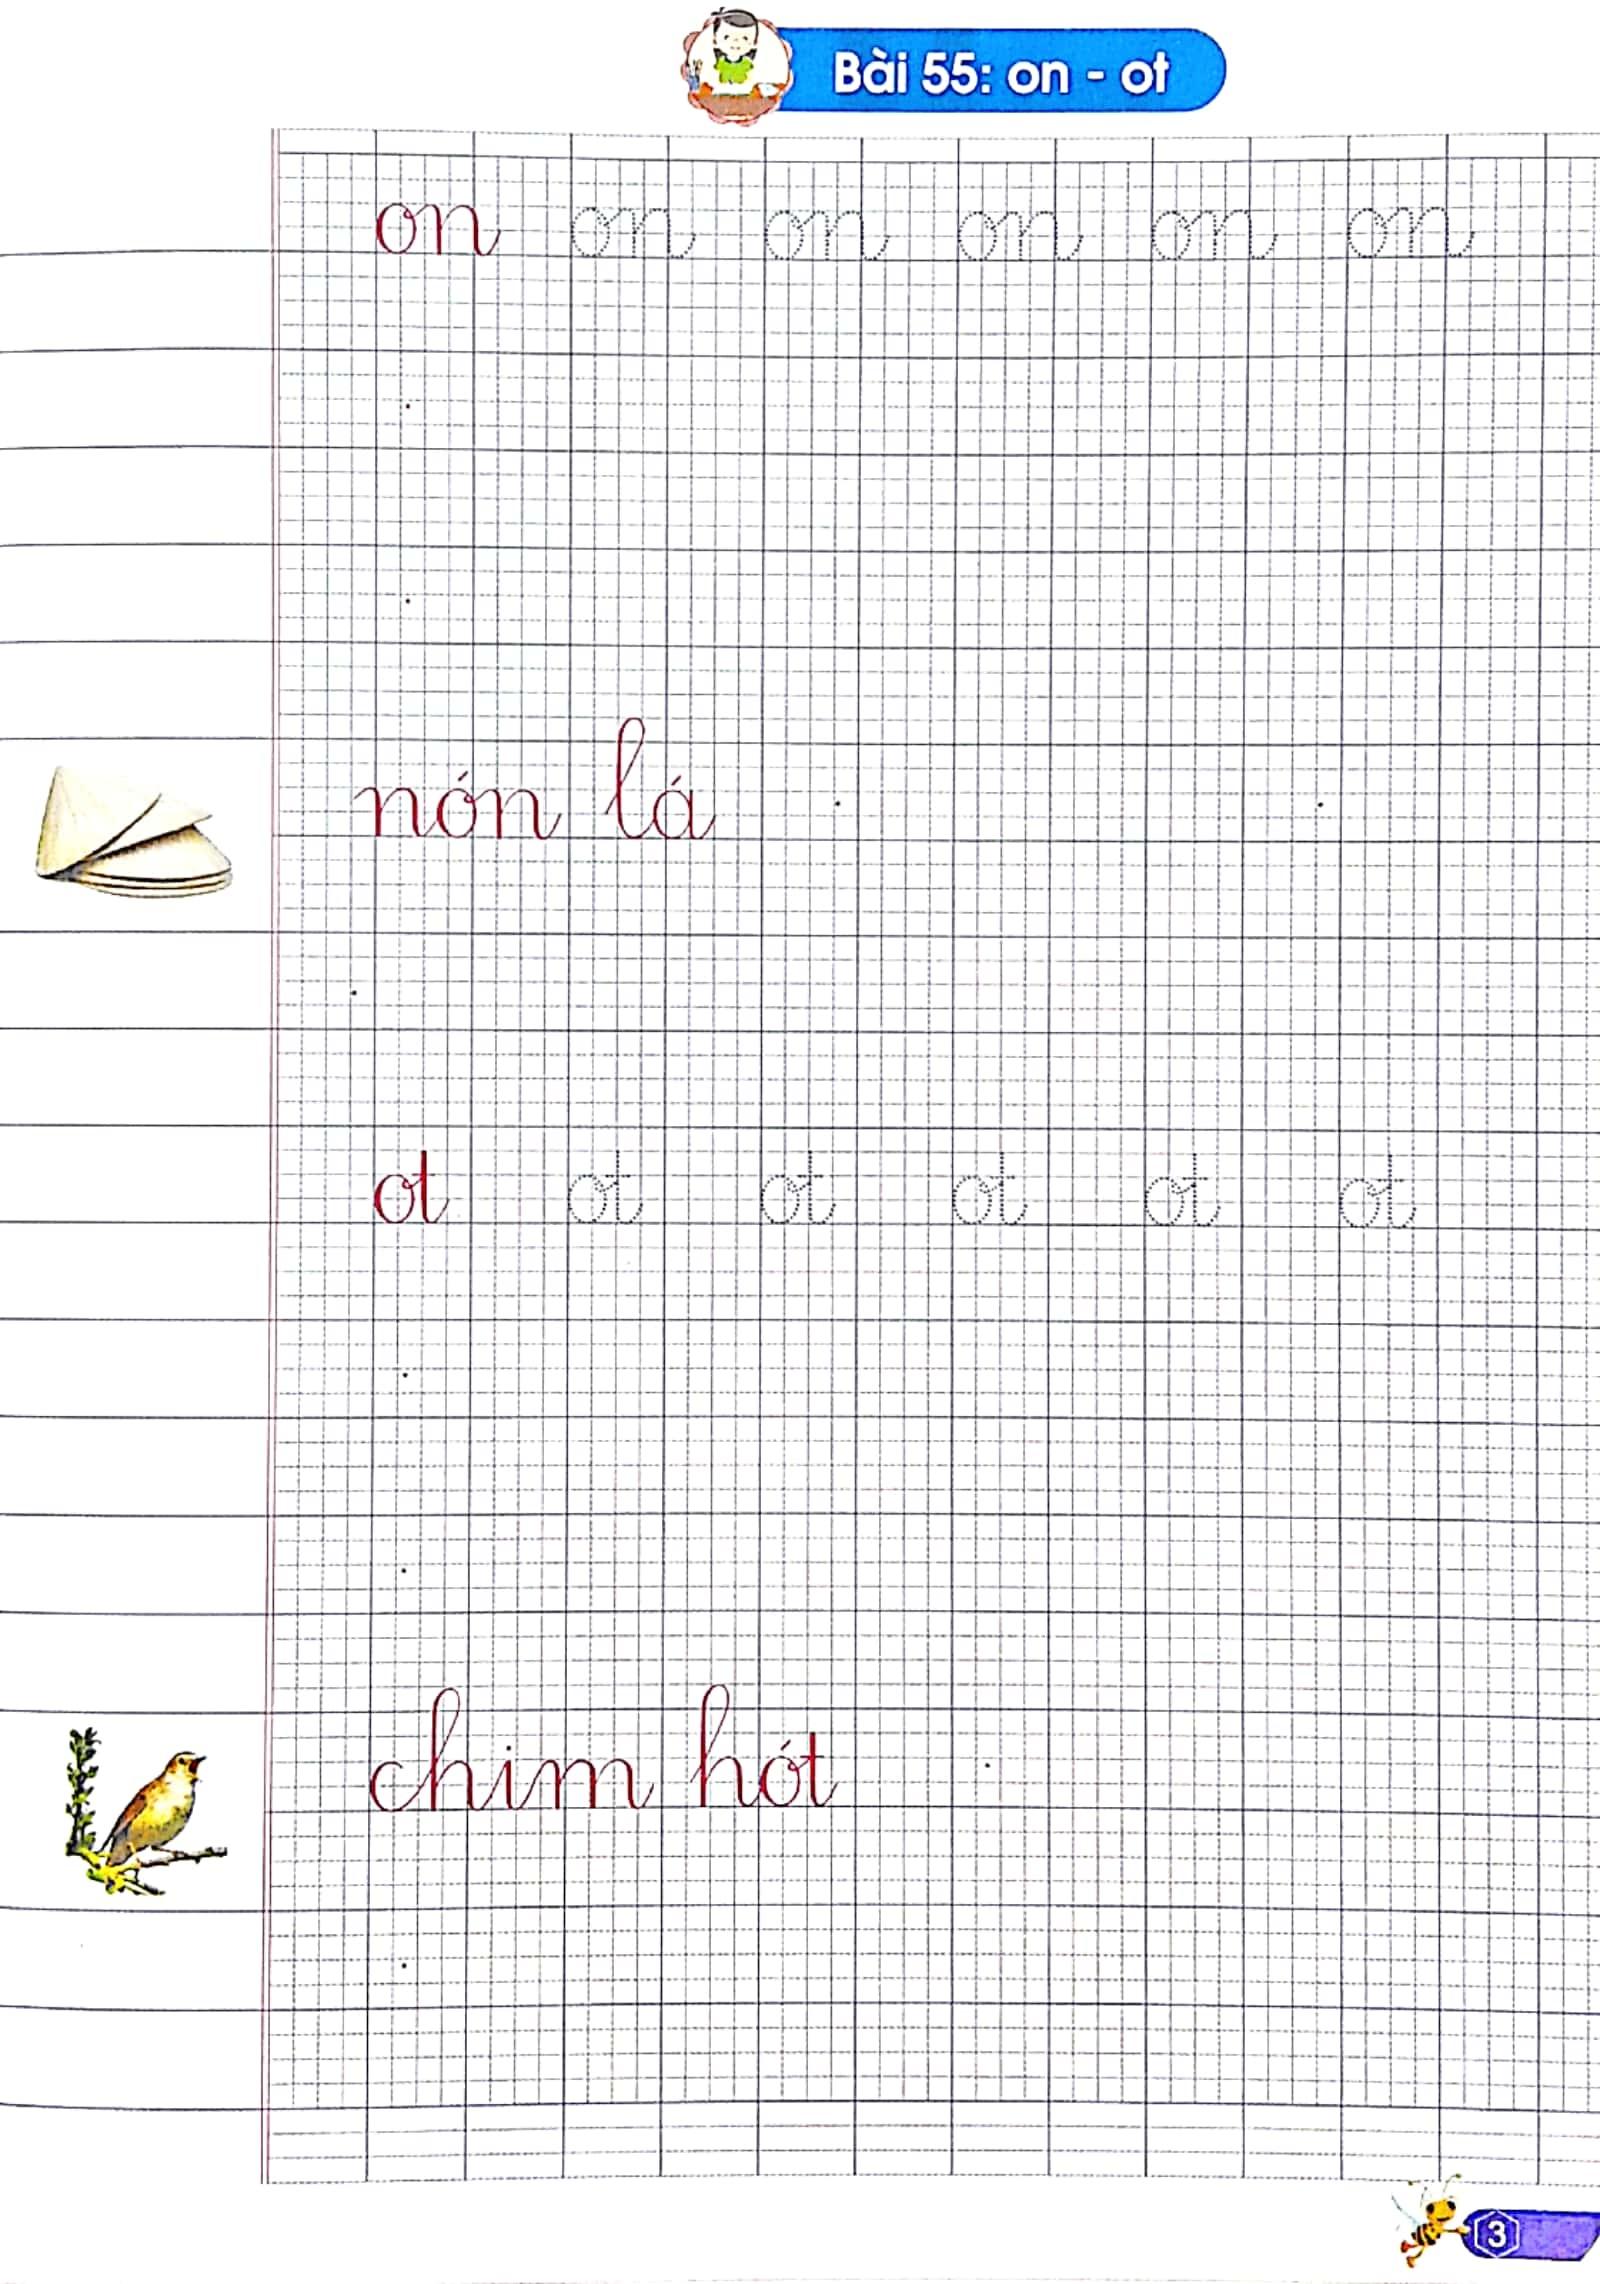 Bài 55: on - ot
on on on on on on
nón lá
ot ot ot ot ot ot
chim hót
3